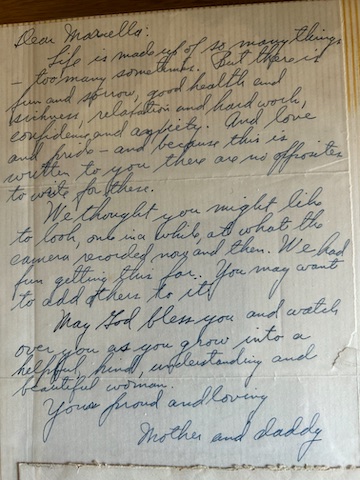 Dear Marnella:
Life is made up of so many things
- too many sometimes. But there is
fun and sorrow, good health and
sickness, relaxation and hard work,
confidence and anxiety. And love
and pride - and because this is
written to you there are no opposites
to write for these.
We thought you might like
to look, once in a while, at what the
camera recorded now and then. We had
fun getting this far. You may want
to add others to it.
May God bless you and watch
over you as you grow into a
helpful, kind, understanding and
beautiful woman.
Your proud and loving
Mother and daddy